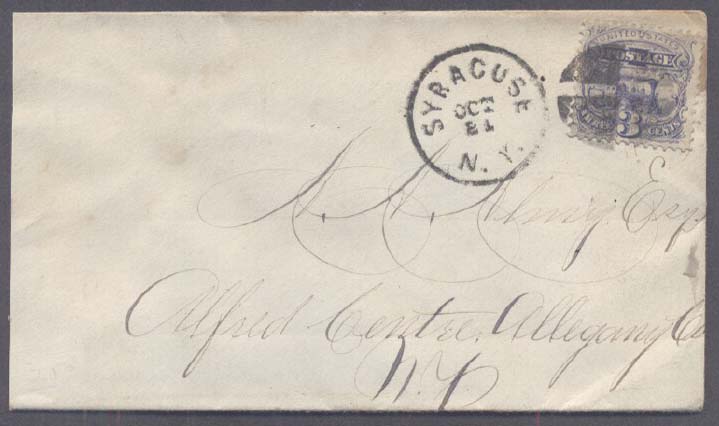 SYRACUSE
OCT
21
N. Y.
UNITED STATES
POSTAGE
3
CENTS
A. A. Almy Esq
Alfred Centre, Allegany Co
N.Y